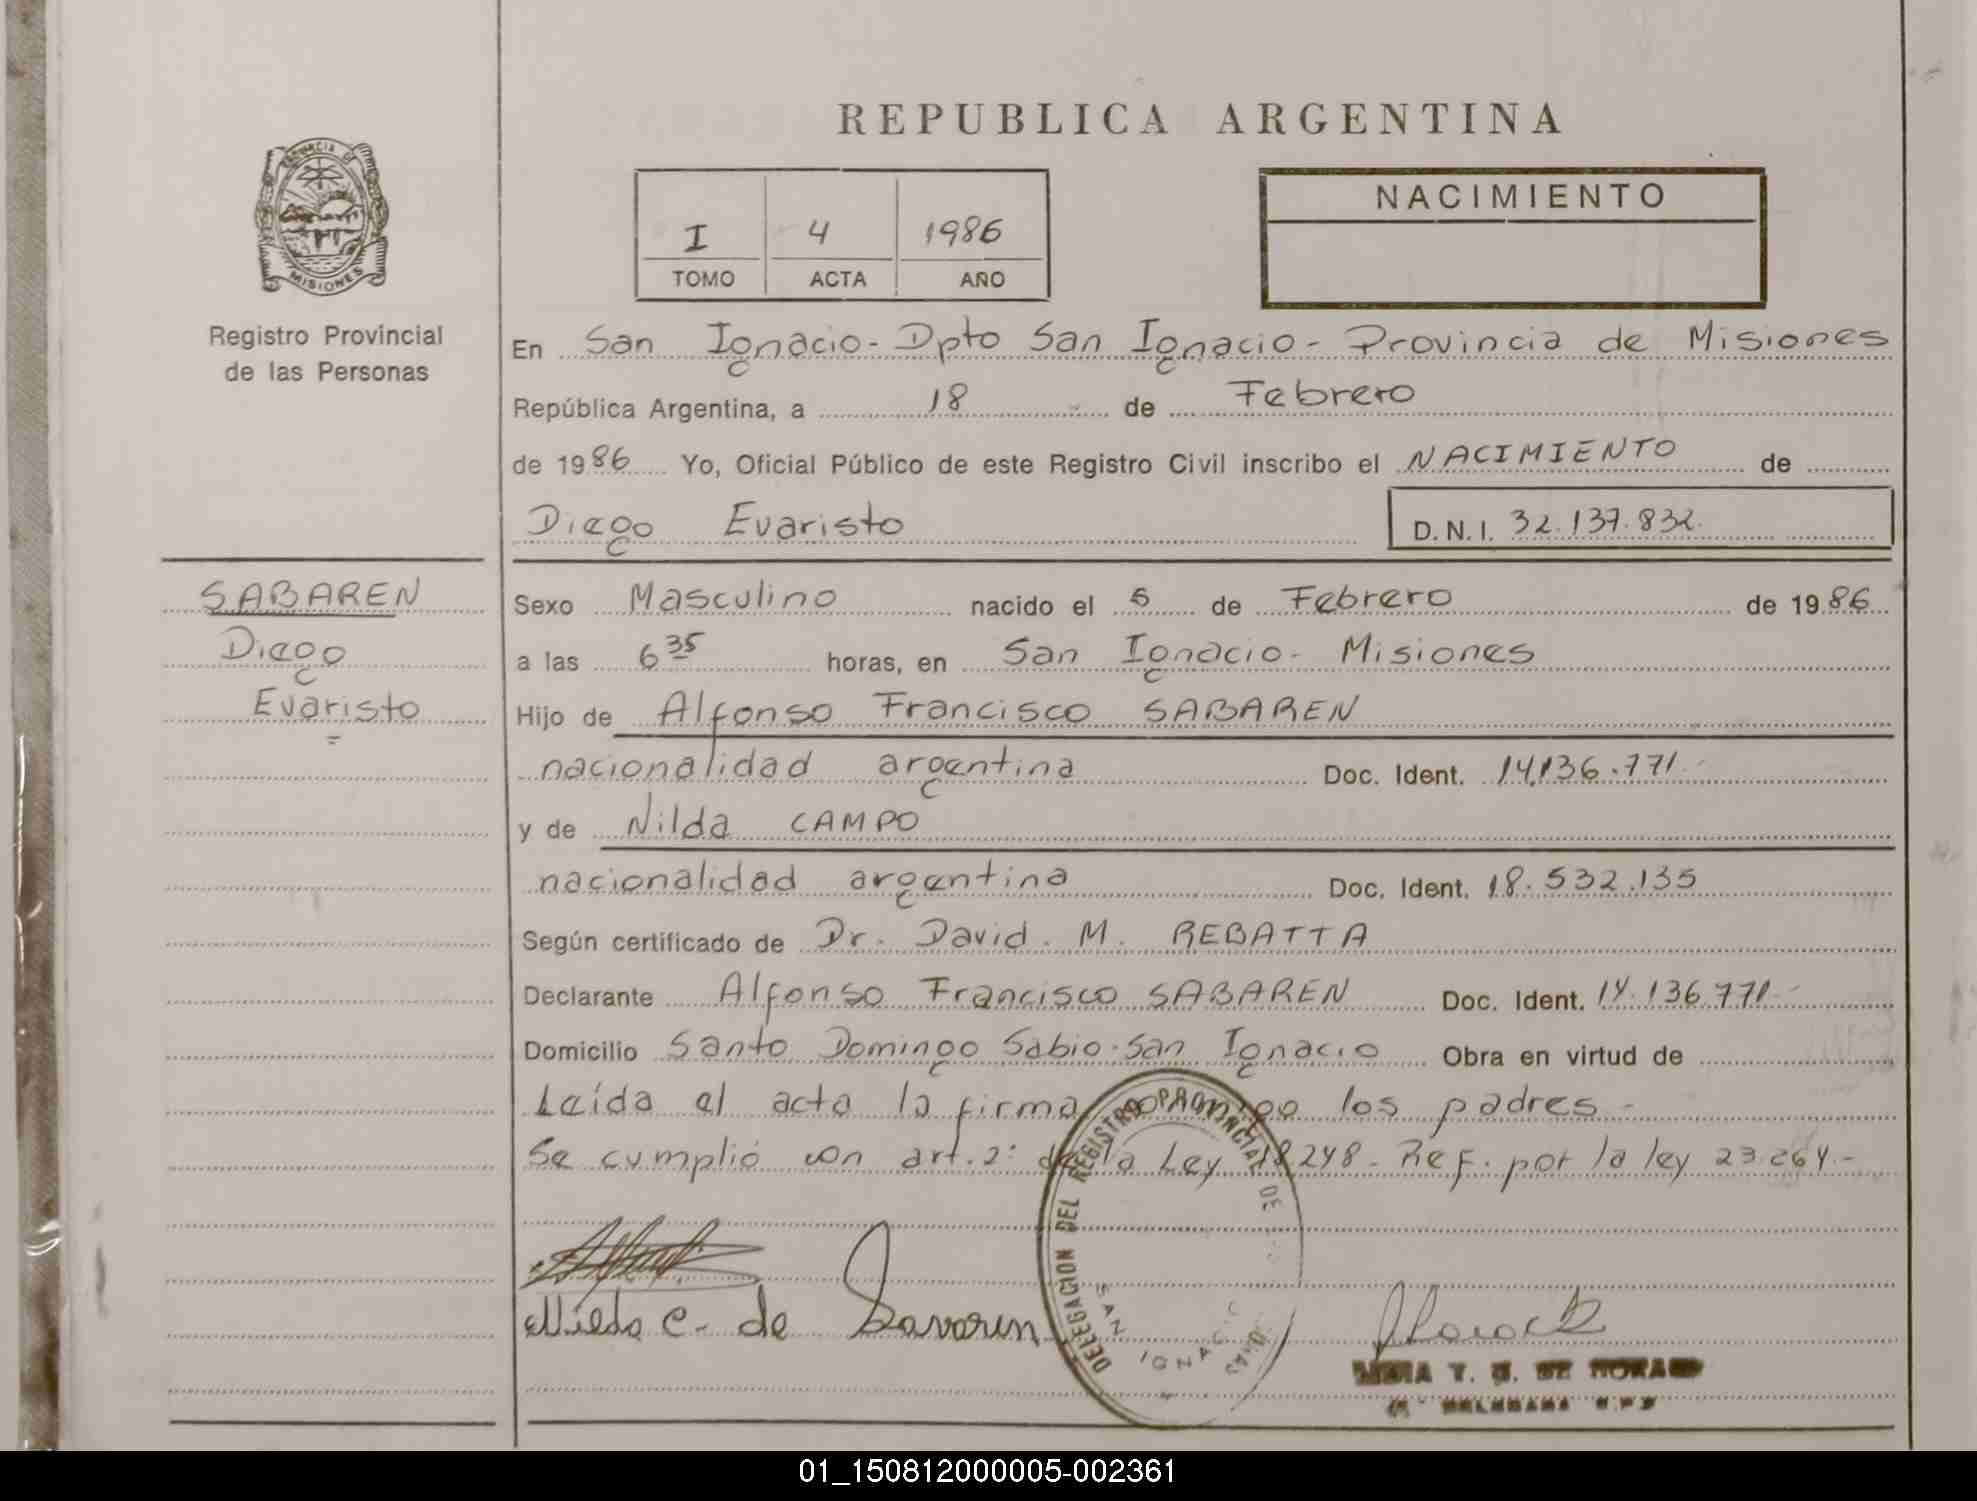 REPUBLICA ARGENTINA
PROVINCIA DE
MISIONES
Registro Provincial
de las Personas
I 4 1986
TOMO ACTA AÑO
NACIMIENTO
En San Ignacio - Dpto San Ignacio - Provincia de Misiones
República Argentina, a 18 de Febrero
de 1986 Yo, Oficial Público de este Registro Civil inscribo el NACIMIENTO de
Diego Evaristo
D.N.I. 32.137.832.
SABAREN
Diego
Evaristo
Sexo Masculino nacido el 5 de Febrero de 1986
a las 6 35 horas, en San Ignacio - Misiones
Hijo de Alfonso Francisco SABAREN
nacionalidad argentina Doc. Ident. 14.136.771
y de Nilda CAMPO
nacionalidad argentina Doc. Ident. 18.532.135
Según certificado de Dr. David M. REBATTA
Declarante Alfonso Francisco SABAREN Doc. Ident. 14.136.771-
Domicilio Santo Domingo Sabio - San Ignacio Obra en virtud de
Leída el acta la firma conmigo los padres -
Se cumplió con art. 2: de la Ley 18248 - Ref. por la ley 23.264.-
DELEGACION DEL REGISTRO PROVINCIAL DE
SAN IGNACIO
Nilda C. de Savaren
DE
01_150812000005-002361